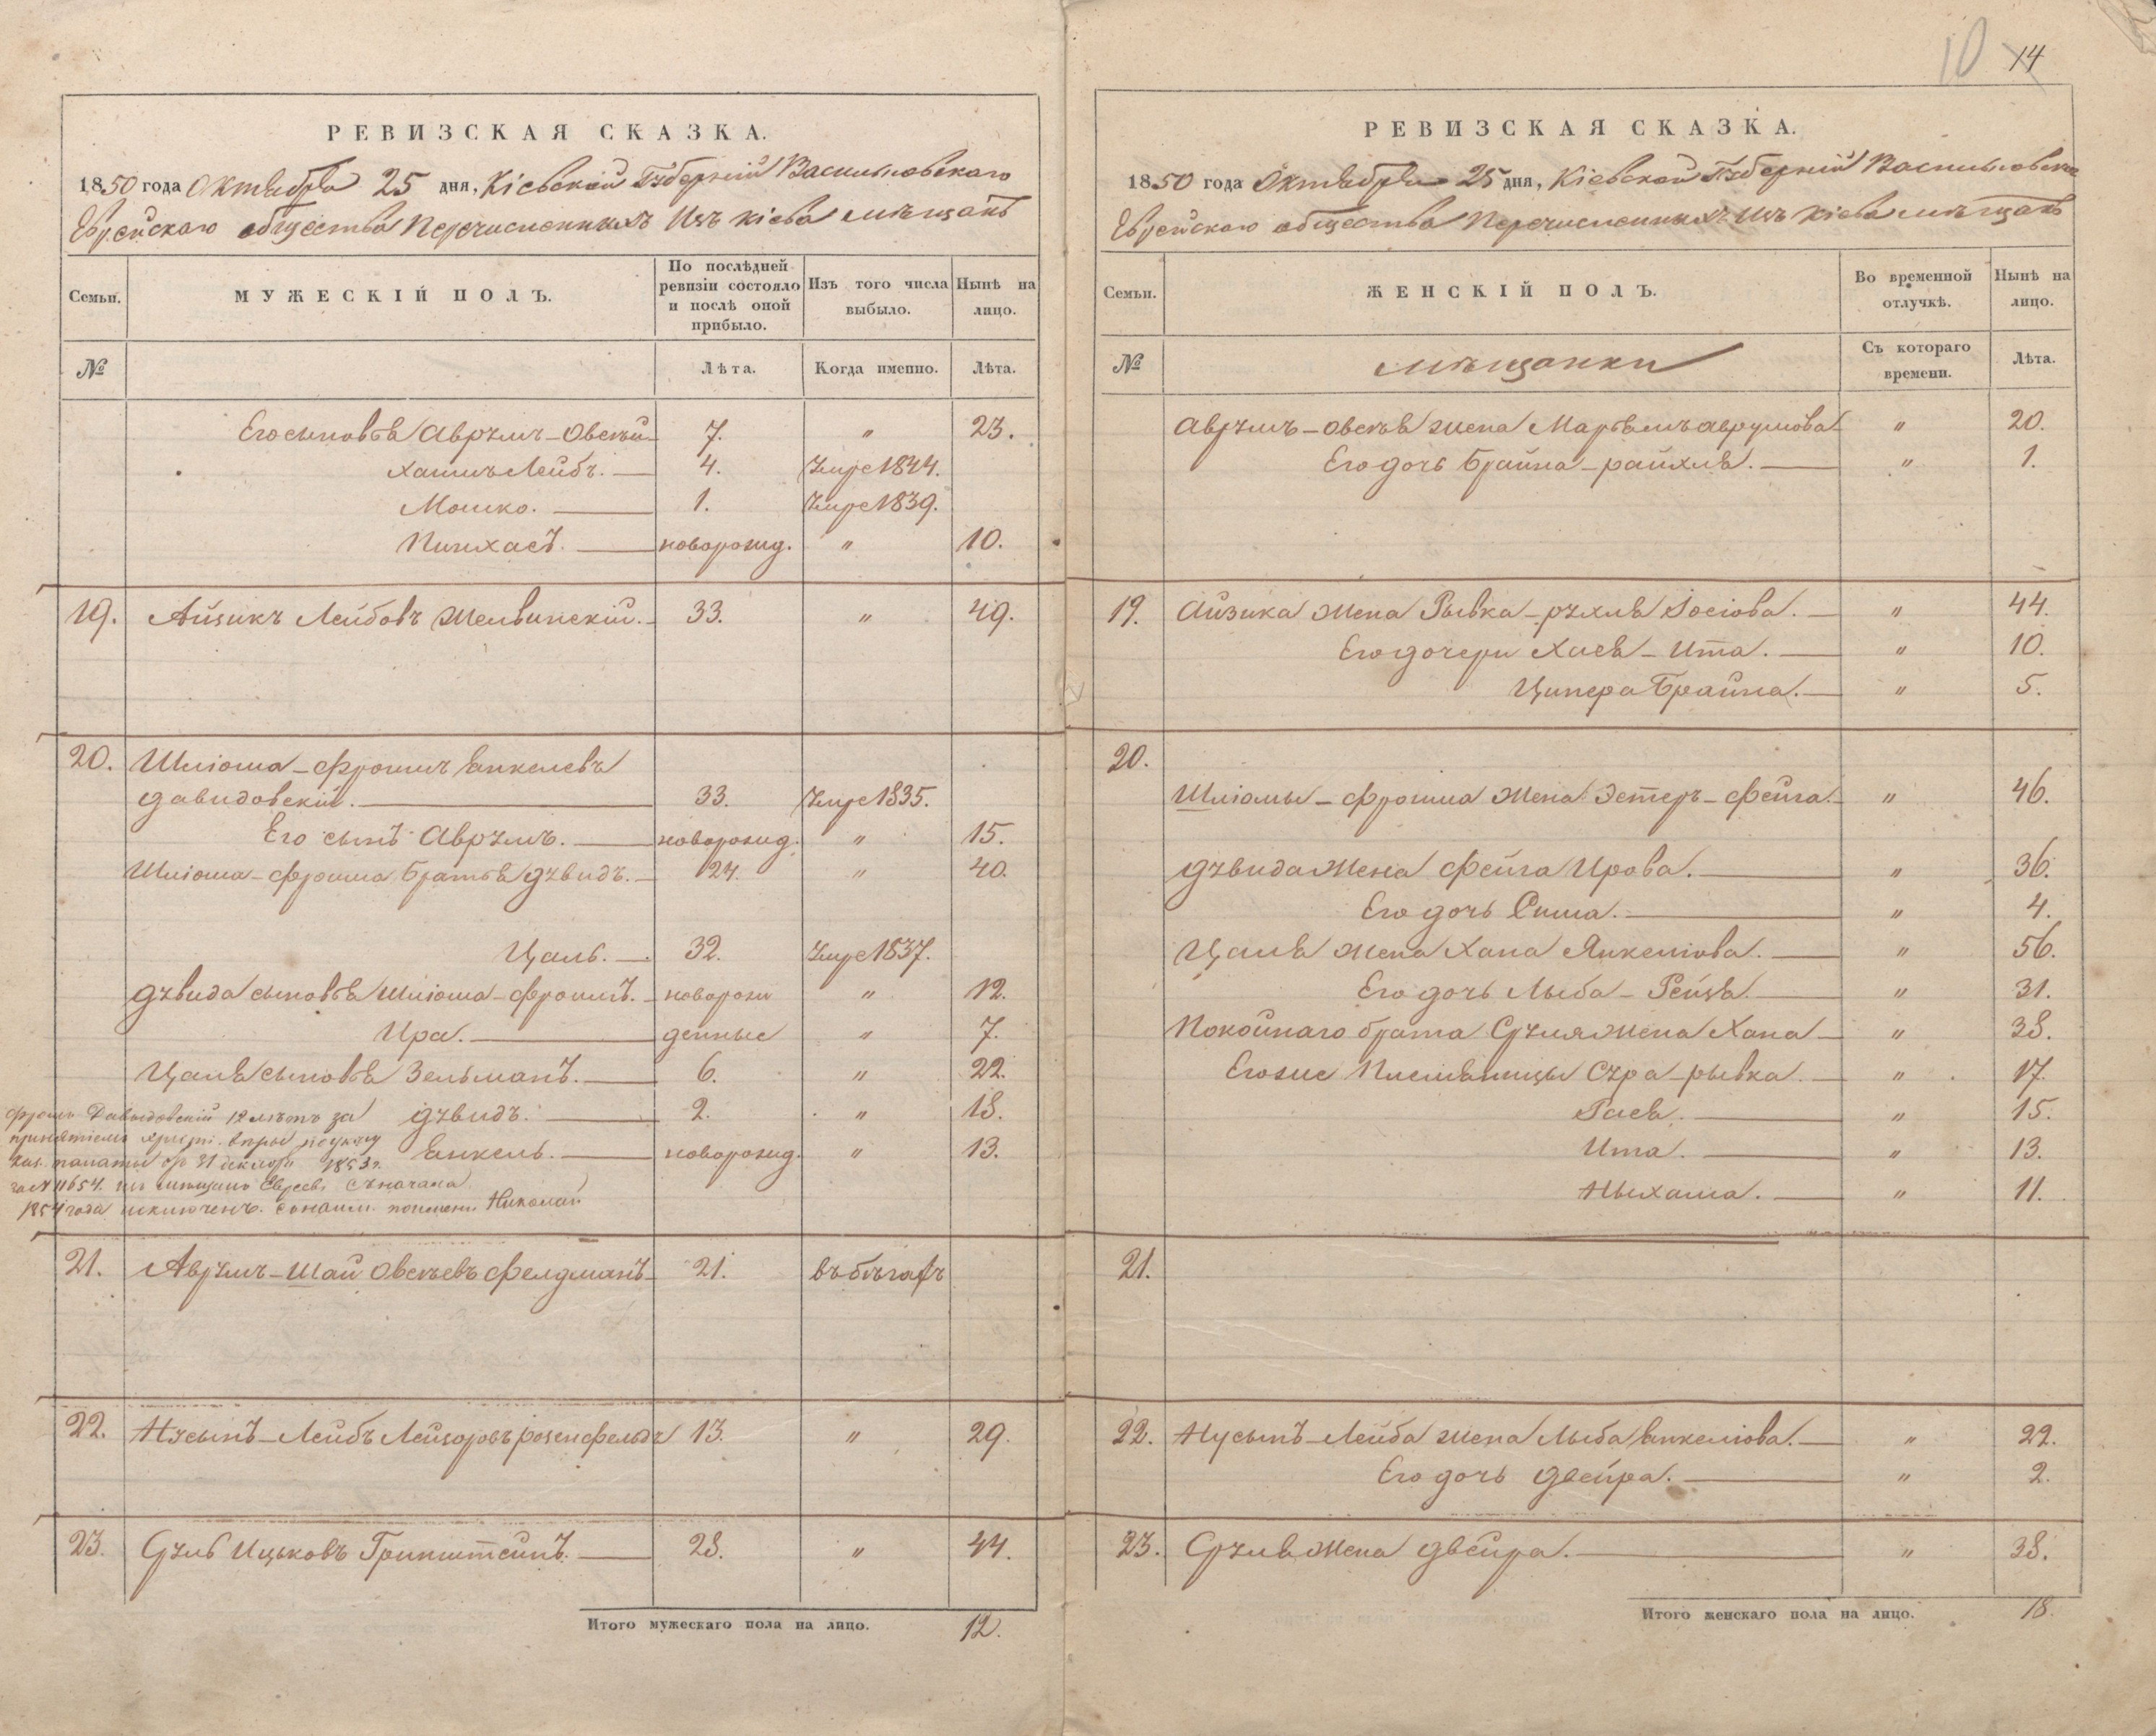 10 14
РЕВИЗСКАЯ СКАЗКА.
1850 года Октября 25 дня, Кіевской Губерніи Васильковскаго
Еврейскаго общества Перечисленныхъ Изъ Кіева мѣщанъ
Семьи.
МУЖЕСКІЙ ПОЛЪ.
По послѣдней ревизіи состояло и послѣ оной прибыло.
Изъ того числа выбыло.
Нынѣ на лицо.
№
Лѣта.
Когда именно.
Лѣта.
Его сыновья Аврумъ-Овсѣй 7. " 23.
Хаимъ Лейбъ. 4. Умре 1844.
Мошко. 1. Умре 1839.
Пинхасъ. новорожд. " 10.
19. Айзикъ Лейбовъ 33. " 49.
20. Шліома-Фроимъ Янкелевъ
Давидовскій. 33. Умре 1835.
Его сынъ Аврумъ. новорожд. " 15.
Шліома-Фроима братья Дувидъ. 24. " 40.
Цаль. 32. Умре 1837.
Дувида сыновья Шліома-Фроимъ. новорож " 12.
Ира. денные " 7.
Цаля сыновья Зельманъ. 6. " 22.
Дувидъ. 2. " 18.
Янкель. новорожд. " 13.
Фроимъ Давыдовскій 12 лѣтъ за
принятіемъ
палаты 31 декабря 1853 г.
за № 11654. мѣщанъ Евреевъ съ начала
1854 года исключенъ. Николай
21. Аврумъ-Шай Овсѣевъ Фелдманъ 21. въ бѣгахъ
22. Нусынъ-Лейбъ Лейзоровъ Розенфельдъ 13. " 29.
23. Сруль Ицьковъ Гринштейнъ. 28. " 44.
Итого мужескаго пола на лицо. 12.
РЕВИЗСКАЯ СКАЗКА.
1850 года Октября 25 дня, Кіевской Губерніи Васильковска
Еврейскаго общества Перечисленныхъ Изъ Кіева мѣщанъ
Семьи.
ЖЕНСКІЙ ПОЛЪ.
Во временной отлучкѣ.
Нынѣ на лицо.
№
мѣщанки
Съ котораго времени.
Лѣта.
Аврумъ-Овсѣя жена Марьямъ Аврумова " 20.
Его дочь Брайна-Райхля. " 1.
19. Айзика жена Рывка-Рухля Іосіова. " 44.
Его дочери Хася-Ита. " 10.
Ципера Брайна. " 5.
20.
Шліомы-Фроима жена Эстеръ-Фейга. " 46.
Дувида жена Фейга Ирова. " 36.
Его дочь Сима. " 4.
Цаля жена Хана Янкеліова. " 56.
Его дочь Лыба-Рейзя. " 31.
Покойнаго брата Сруля жена Хана " 38.
Его же Племянницы Сура-Рывка. " 17.
Рася. " 15.
Ита. " 13.
Ныхама. " 11.
21.
22. Нусынъ-Лейба жена Лыба Янкеліова. " 22.
Его дочь Двейра. " 2.
23. Сруля жена Двейра. " 38.
Итого женскаго пола на лицо. 18.